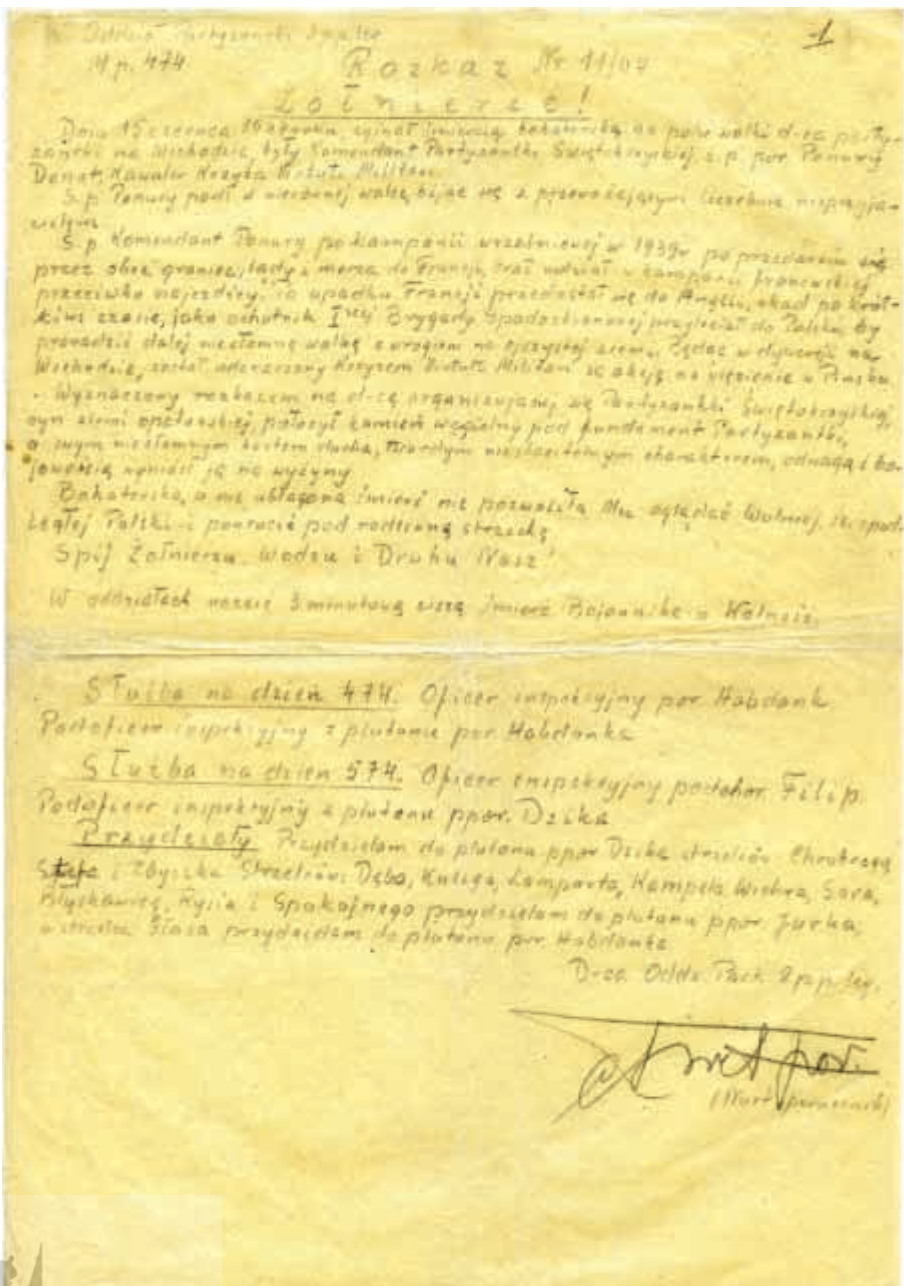 -1
Oddział Partyzancki
M.p. 474
Rozkaz Nr 11/44
Żołnierze!
Dnia 15 czerwca zginął śmiercią bohaterską na polu walki d-ca party-
zantki na Wschodzie, były Komendant Partyzantki Świętokrzyskiej ś.p. por. Ponury
Donat, Kawaler Krzyża Virtuti Militari
Ś.p. Ponury padł w nierównej walce bijąc się z przeważającym liczebnie nieprzyja-
cielem
Ś.p. Komendant Ponury po kampanii wrześniowej w 1939r po przedarciu się
przez obce granice, lądy i morza do Francji, brał udział w kampanii francuskiej
przeciwko najeźdźcy, po upadku Francji przedostał się do Anglii, skąd po krót-
kim czasie, jako ochotnik Brygady Spadochronowej przyleciał do Polski by
prowadzić dalej niezłomną walkę z wrogiem na ojczystej ziemi. Będąc w dywersji na
Wschodzie, został odznaczony Krzyżem Virtuti Militari za akcję na więzienie w Pińsku.
Wyznaczony rozkazem na d-cę organizującej się Partyzantki Świętokrzyskiej
syn ziemi opatowskiej, położył kamień węgielny pod fundament Partyzantów,
a swym niezłomnym hartem ducha, twardym charakterem, odwagą i bo-
jowością wyniósł ją na wyżyny
Bohaterska, a nie ubłagana śmierć nie pozwoliła Mu oglądać Wolnej, Niepod-
ległej Polski i powrócić pod rodzinną strzechę
Śpij Żołnierzu, Wodzu i Druhu Nasz!
W oddziałach uczcić 3 minutową ciszą śmierć Bojownika o Wolność.
Służba na dzień 474. Oficer inspekcyjny por. Habdank
Podoficer inspekcyjny z plutonu por. Habdanka
Służba na dzień 574. Oficer inspekcyjny podchor. Filip
Podoficer inspekcyjny z plutonu ppor. Dzika
Przydziały Przydzielam do plutonu ppor Dzika strzelców Chrobrego
i Zbyszka Strzelców: Dęba, Kuliga, Lamparta, Wichra,
Błyskawicę, Rysia i Spokojnego przydzielam do plutonu ppor. Jurka,
a strzelca przydzielam do plutonu por. Habdanka
D-ca Oddz. Part. 2 p.p. Leg.
Nurt por.
(Nurt porucznik)